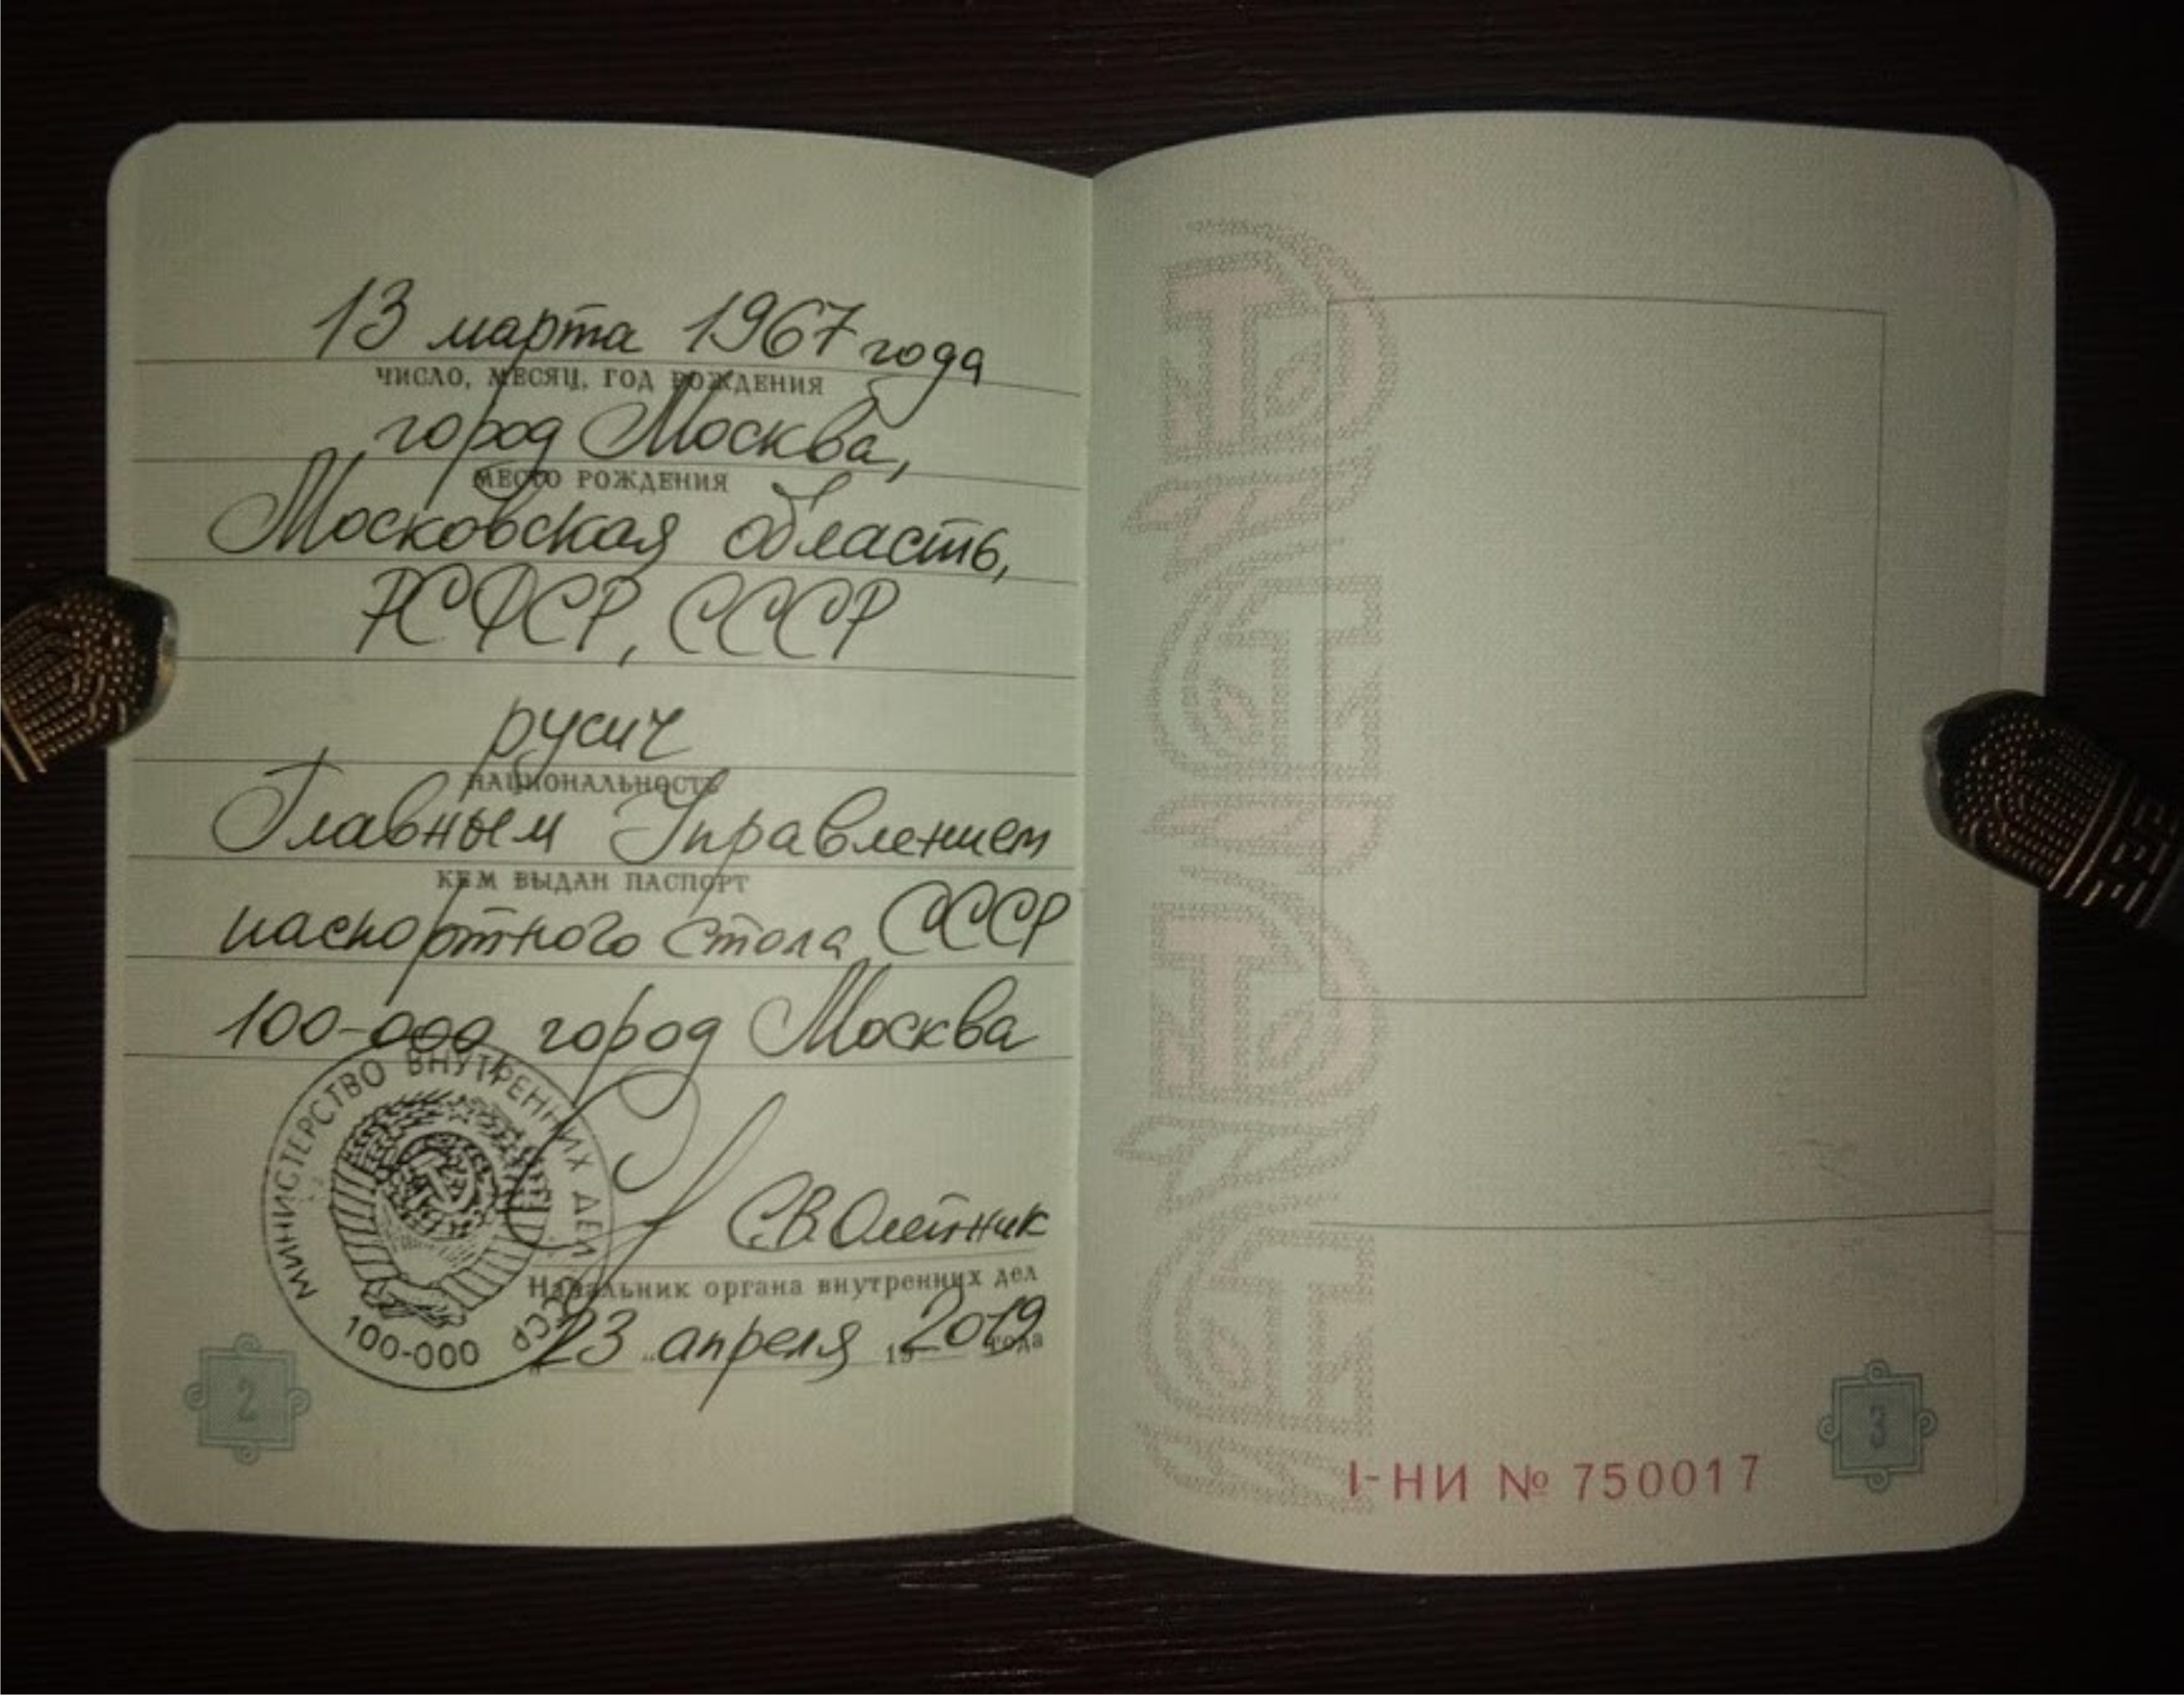 13 марта 1967 года
ЧИСЛО, МЕСЯЦ, ГОД РОЖДЕНИЯ
город Москва,
МЕСТО РОЖДЕНИЯ
Московская область,
РСФСР, СССР
русич
НАЦИОНАЛЬНОСТЬ
Главным Управлением
КЕМ ВЫДАН ПАСПОРТ
паспортного стола СССР
100-000 город Москва
МИНИСТЕРСТВО ВНУТРЕННИХ ДЕЛ СССР
100-000
С.В.Олейник
Начальник органа внутренних дел
„23" апреля 192019 года
2
I-НИ № 750017
3